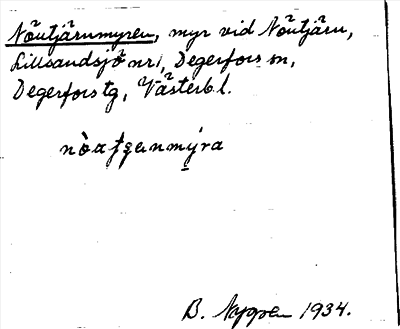 Nöutjärnmyren, myr vid Nöutjärn,
Lillsandsjö nr 1, Degerfors sn,
Degerfors tg, Västerb. l.
nòatʃęanmýra
B. Nygren 1934.